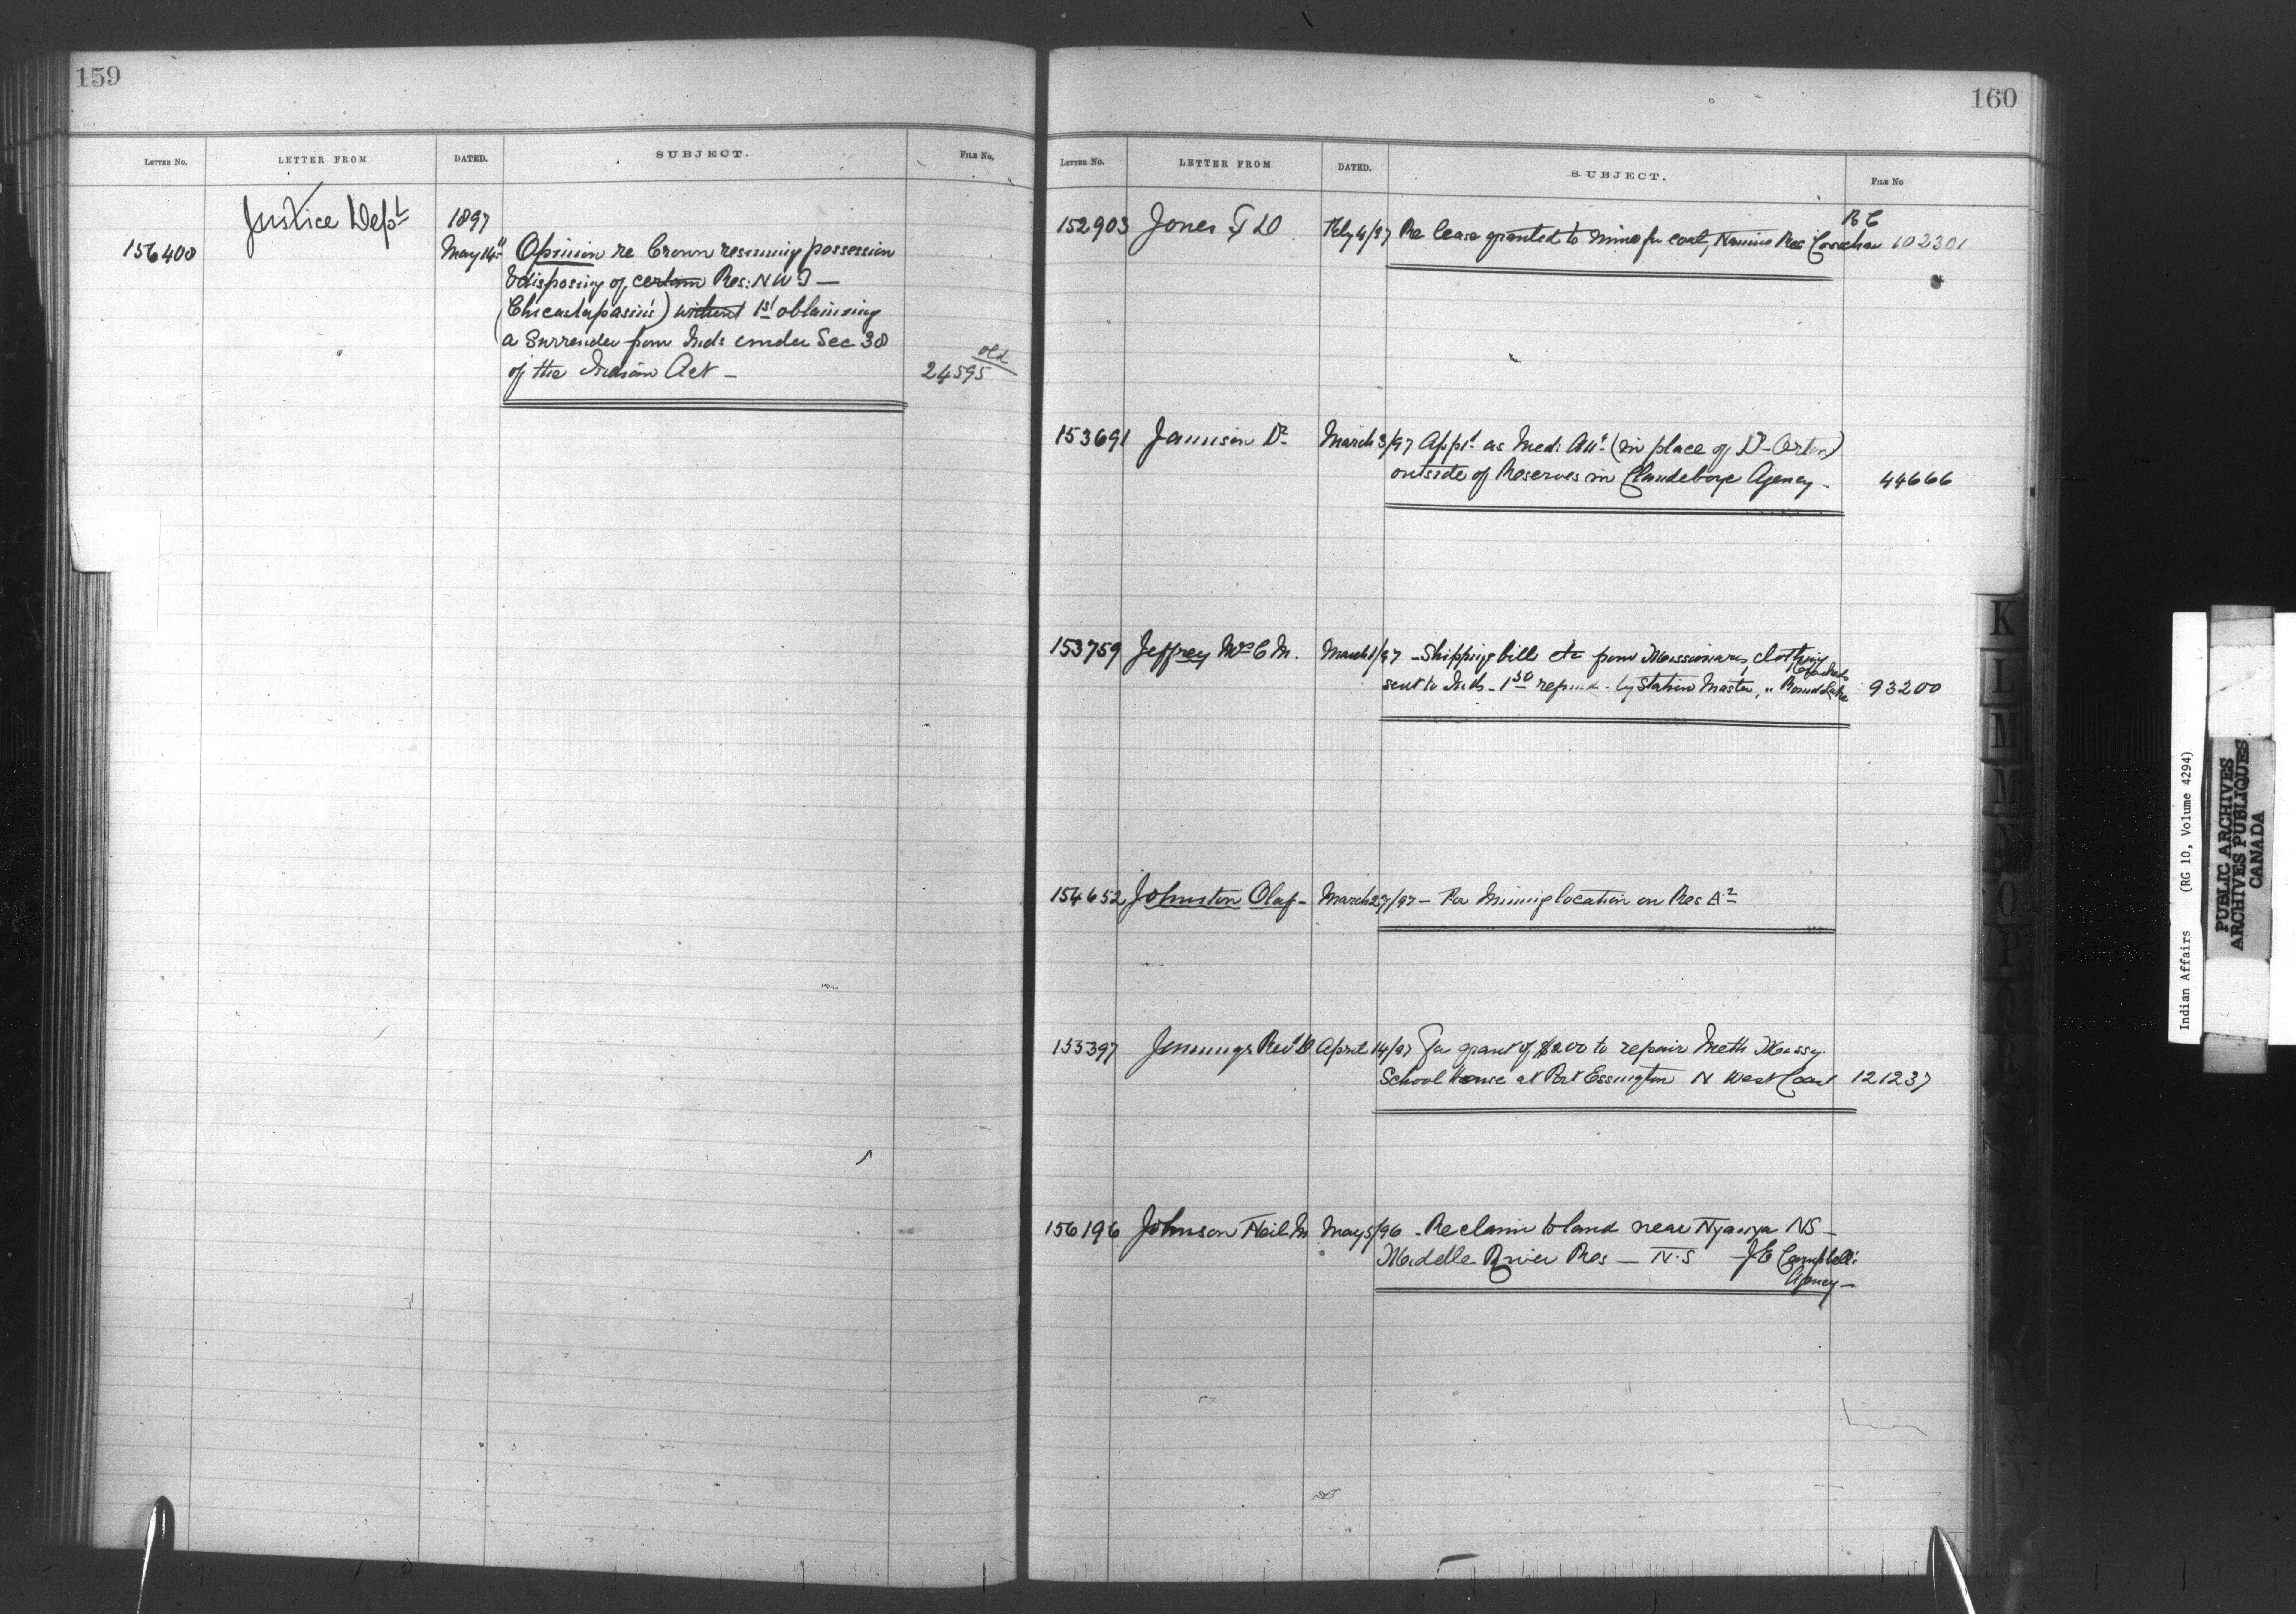 159
LETTER NO. LETTER FROM DATED. SUBJECT. FILE NO.
Justice Dept 1897
156400 May 14th Opinion re Crown resuming possession
& disposing of certain Res: N W T —
(Chicastapasin's) without 1st obtaining
a Surrender from Inds under Sec 38
of the Indian Act —
old
24595
160
LETTER NO. LETTER FROM DATED. SUBJECT. FILE NO
B C
152903 Jones Feby 4/97 Re lease granted to mine for coal, Res Cowichan 102301
153691 Jamison Dr March 3/97 Appt as Med: Att (in place of Dr Orton)
outside of Reserves in Clandeboye Agency - 44666
153759 Jeffrey Mrs C M. March 1/97 - Shipping bill etc from clothing
sent to Inds - by Station Master, " Round Lake 93200
154652 Johnston Olaf - March 27/97 - For Mining location on Res
155397 Jennings Revd April 14/97 For grant of $200 to repair Meth Missy
School House at Port Essington N West Coast 121237
156196 Johnson Neil M May 5/96 - Re claim to land near Nyanza NS -
Middle River Res — N.S J E Campbell's
Agency —
K
L
M
M
N
O
P
Q
R
S
Indian Affairs (RG 10, Volume 4294)
PUBLIC ARCHIVES
ARCHIVES PUBLIQUES
CANADA